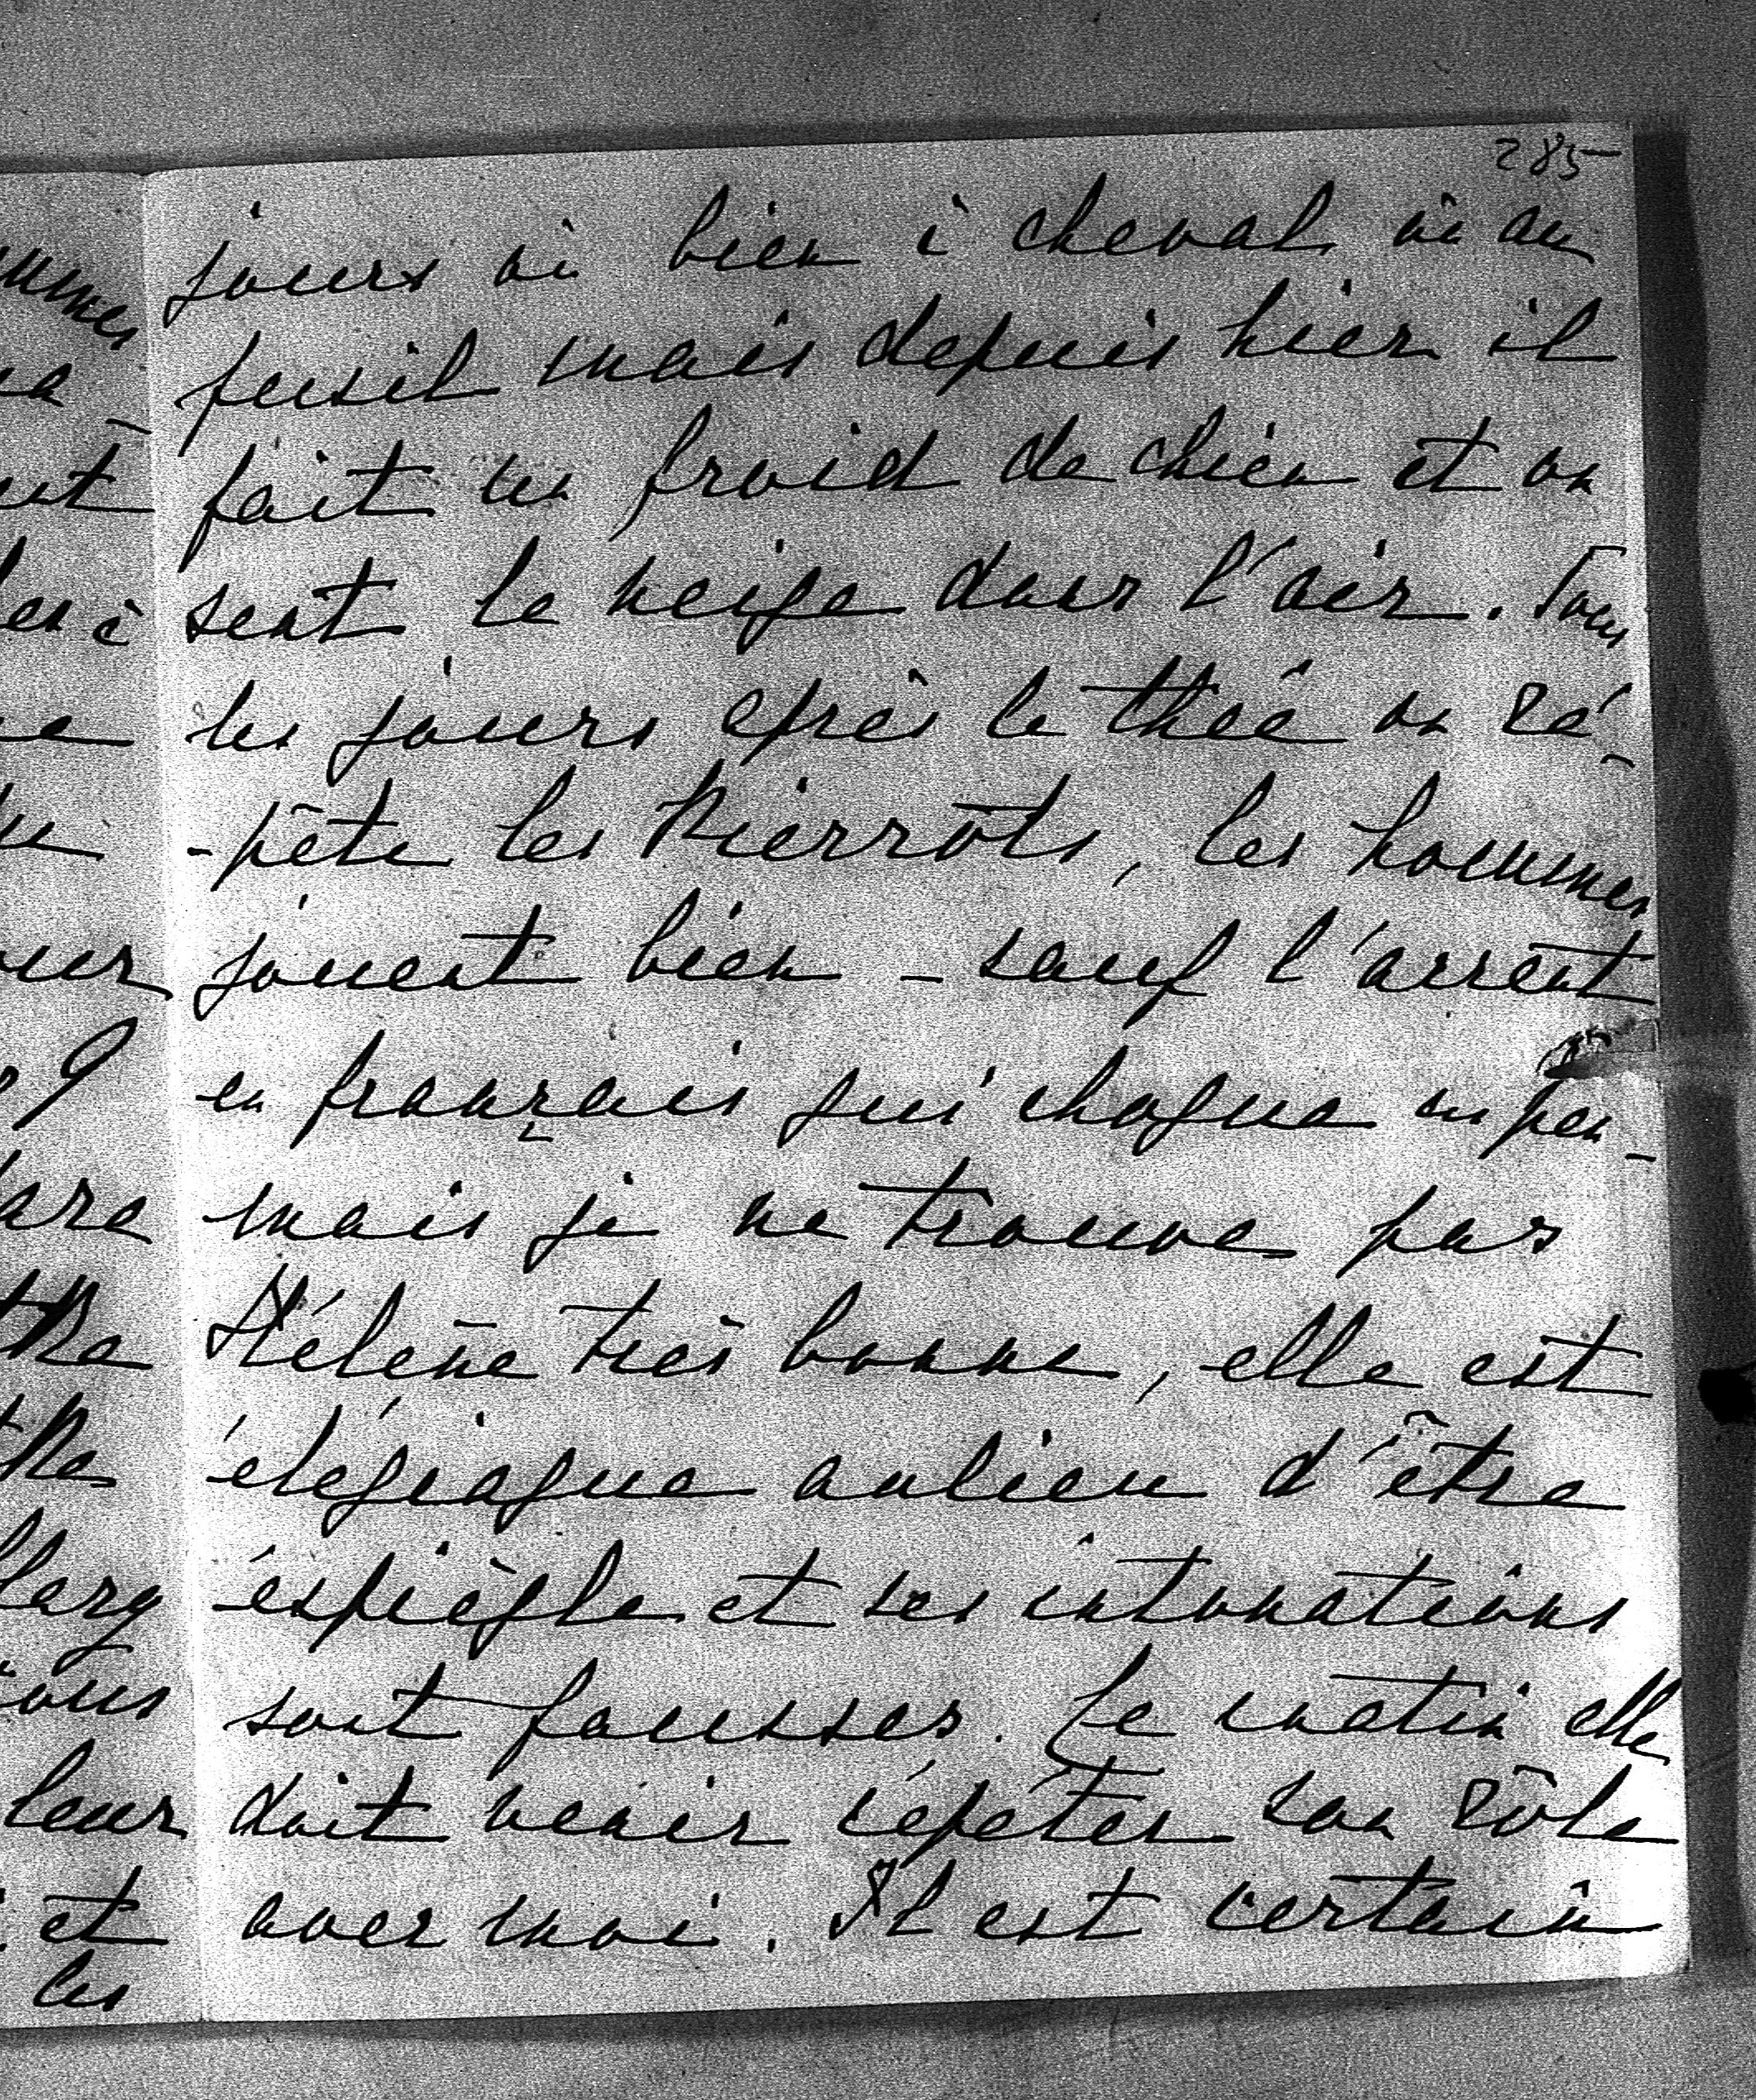 285
jours où bien à cheval où au
fusil mais depuis hier il
fait un froid de chien et on
sent la neige dans l'air. Tous
les jours après le thé on ré-
-pète les Pierrots, les hommes
jouent bien – sauf l'accent
en français qui choque un peu –
mais je ne trouve pas
Hélène très bonne, elle est
élégiaque aulieu d'être
éspiègle et ses intonations
sont fausses. Le matin elle
doit venir répéter son rôle
avec moi. Il est certain